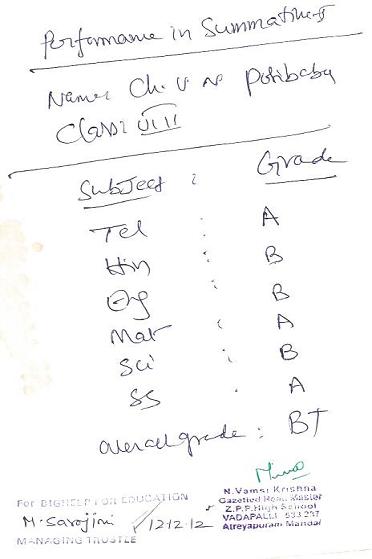 Performance in Summative-I
Name: Ch. V N Potibabu
Class: VIII
Subject : Grade
Tel : A
Hin : B
Eng : B
Mat : A
Sci : B
SS : A
Overall grade : B+
For BIGHELP FOR EDUCATION
M. Sarojini 12.12.12
MANAGING TRUSTEE
N. Vamsi Krishna
Gazetted Head Master
Z.P.P. High School
VADAPALLI 533 237
Atreyapuram Mandal